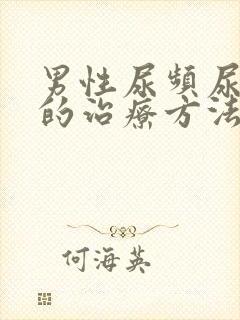 男性尿頻尿
的治療方法
何海英